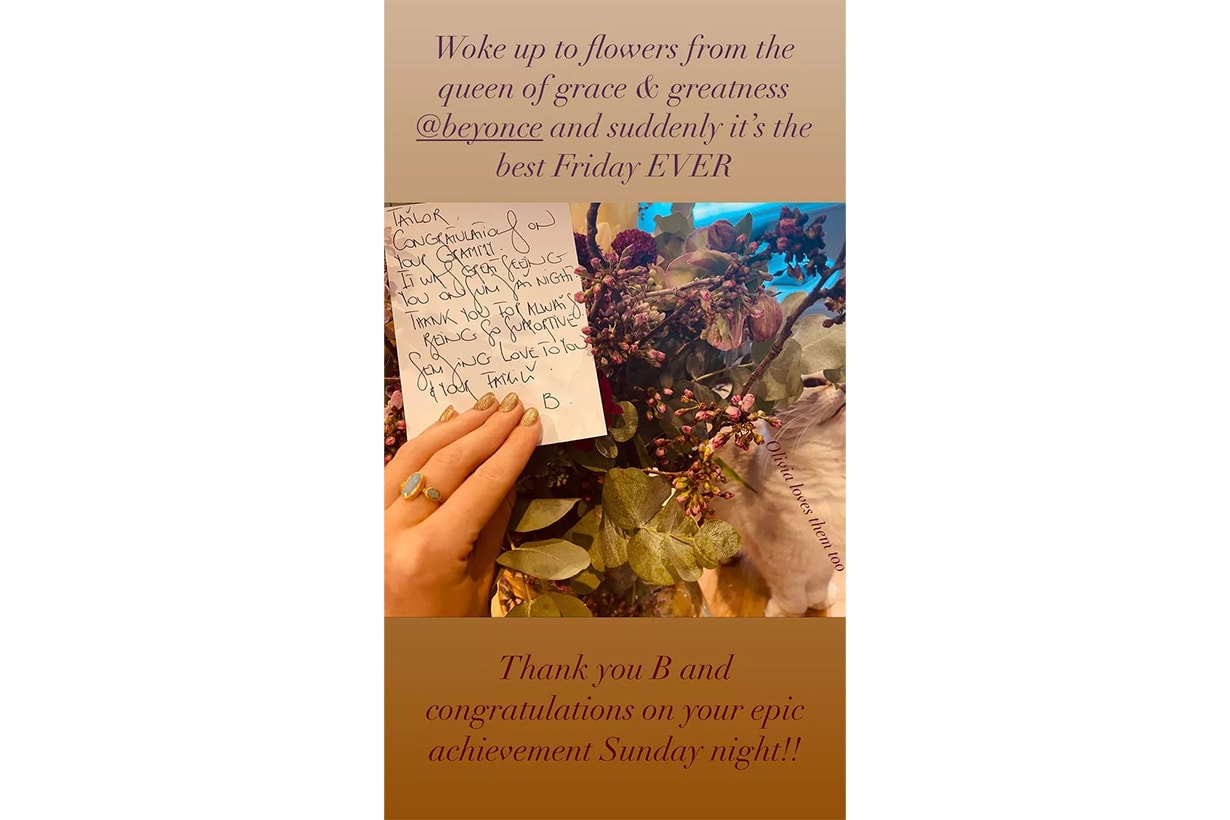 Woke up to flowers from the
queen of grace & greatness
@beyonce and suddenly it's the
best Friday EVER
TAYLOR,
CONGRATULATIONS ON
YOUR GRAMMY.
IT WAS GREAT SEEING
YOU ON SUNDAY NIGHT.
THANK YOU FOR ALWAYS
BEING SO SUPPORTIVE
SENDING LOVE TO YOU
& YOUR FAMILY.
B.
Olivia loves them too
Thank you B and
congratulations on your epic
achievement Sunday night!!